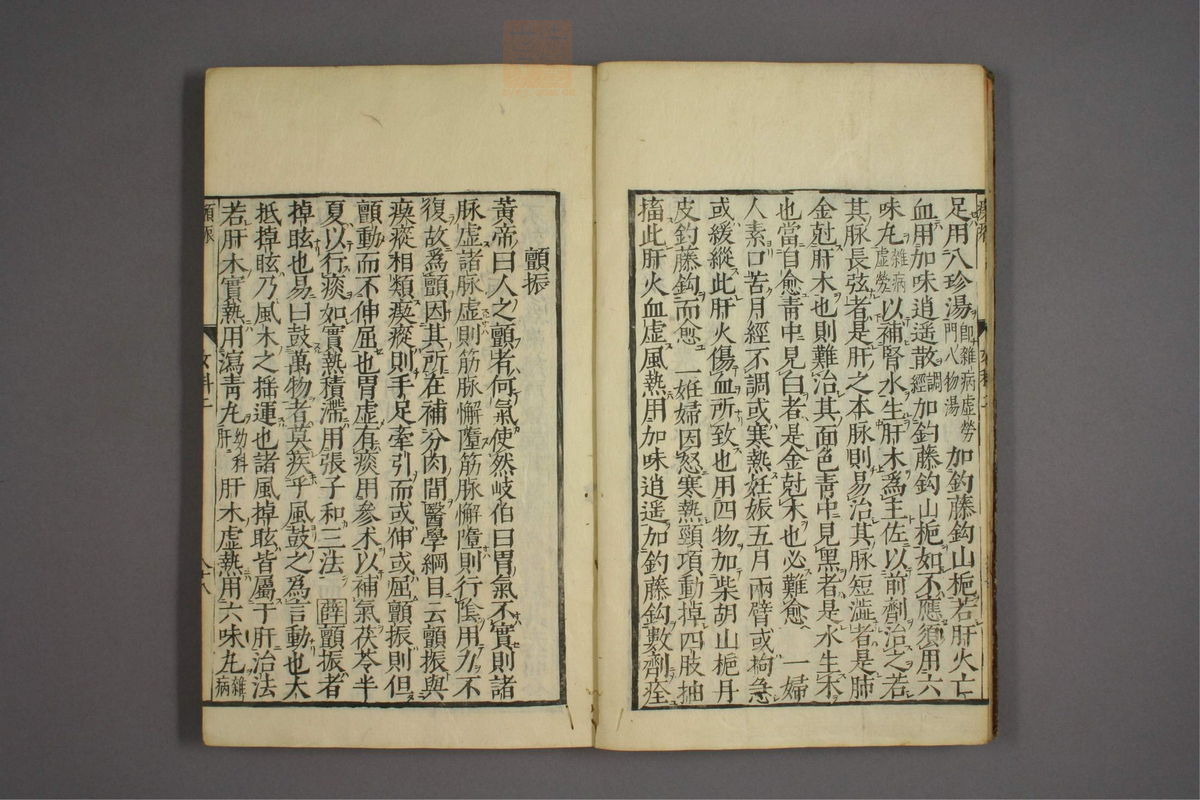 足用八珍湯即雜病虛勞門八物湯加釣藤鈎山梔若肝火亡
血用加味逍遙散調經加釣藤鈎山梔如不應須用六
味丸雜病虛勞以補腎水生肝木爲主佐以前劑治之若
其脉長弦者是肝之本脉則易治其脉短澁者是肺
金尅肝木也則難治其面色靑中見黑者是水生木
也當自愈靑中見白者是金尅木也必難愈 一婦
人素口苦月經不調或寒熱妊娠五月兩臂或拘急
或緩縱此肝火傷血所致也用四物加柴胡山梔丹
皮釣藤鈎而愈 一姙婦因怒寒熱頸項動掉四肢抽
搐此肝火血虛風熱用加味逍遙加釣藤鈎數劑痊
顫振
黃帝曰人之顫者何氣使然岐伯曰胃氣不實則諸
脉虛諸脉虛則筋脉懈墮筋脉懈墮則行陰用力不
復故爲顫因其所在補分肉間醫學綱目云顫振與
瘈瘲相類瘈瘲則手足牽引而或伸或屈顫振則但
顫動而不伸屈也胃虛有痰用參术以補氣茯苓半
夏以行痰如實熱積滯用張子和三法 薛顫振者
掉眩也易曰鼓萬物者莫疾乎風鼓之爲言動也大
抵掉眩乃風木之搖運也諸風掉眩皆屬于肝治法
若肝木實熱用瀉靑丸幼科肝肝木虛熱用六味丸雜病
顫振
女科二